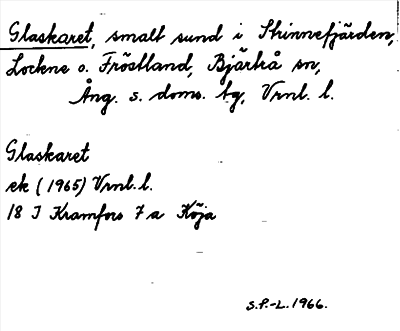 Glaskaret, smalt sund i Skinnefjärden,
Lockne o. Fröstland, Bjärtrå sn,
Ång. s. doms. tg, Vrnl. l.
Glaskaret
ek (1965) Vrnl. l.
18 I Kramfors 7 a Köja
S.P.-L. 1966.